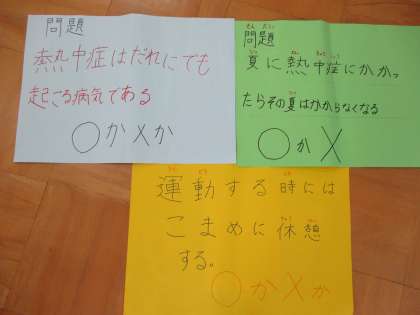 問題
熱中症はだれにでも
起こる病気である
○か×か
もんだい
問題
夏に熱中症にかかっ
たらその夏はかからなくなる
○か×
運動する時には
こまめに休憩
する。
○か×か